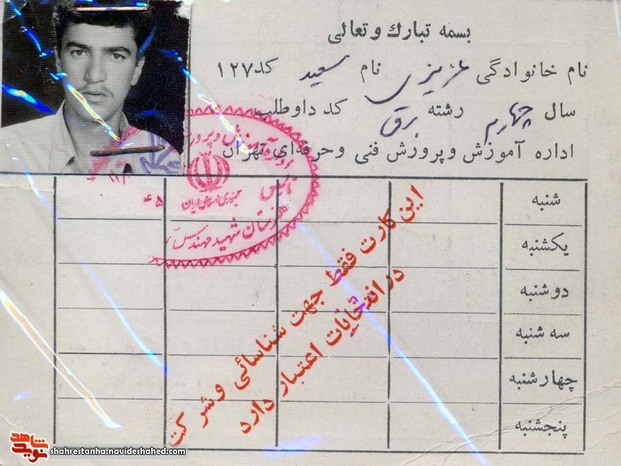 بسمه تبارك وتعالی
نام خانوادگی عزیزی نام سعید کد ۱۲۷
سال چهارم رشته برق کد داوطلب
اداره آموزش و پرورش فنی و حرفه‌ای تهران
جمهوری اسلامی ایران
هنرستان شهید مهندس
شنبه
یکشنبه
دوشنبه
سه شنبه
چهارشنبه
پنجشنبه
این کارت فقط جهت شناسائی و شرکت
در انتخابات اعتبار دارد
نوید شاهد
shahrestanha.navideshahed.com